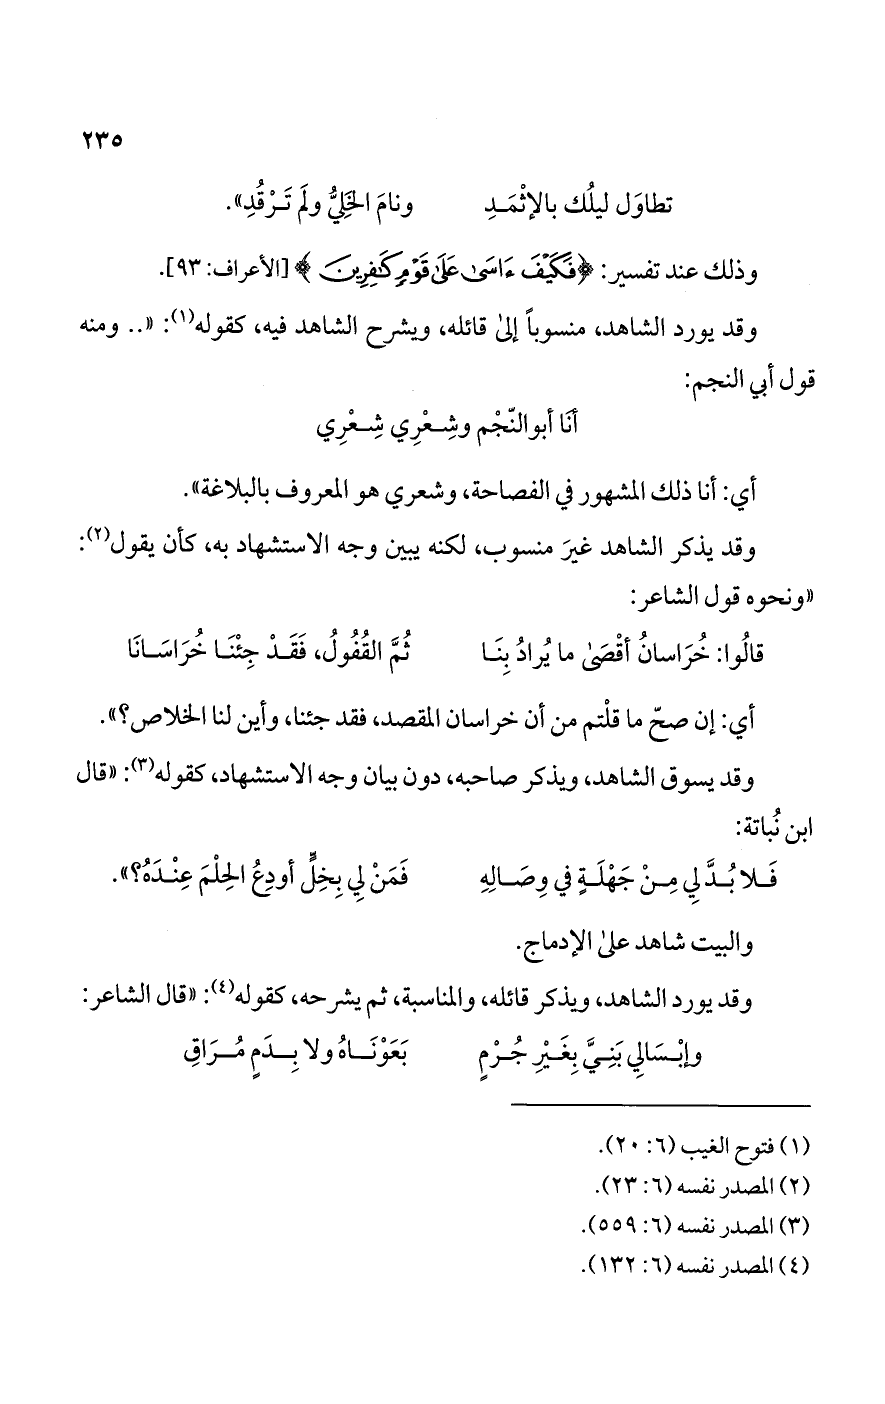 ٢٣٥
تطاوَل ليلُك بالإثْمَـدِ ونامَ الخَلِيُّ ولَم تَـرْقُدِ».
وذلك عند تفسير: ﴿فَكَيْفَ ءَاسَىٰ عَلَىٰ قَوْمٍ كَـٰفِرِينَ﴾ [الأعراف: ٩٣].
وقد يورد الشاهد، منسوباً إلىٰ قائله، ويشرح الشاهد فيه، كقوله(١): «.. ومنه
قول أبي النجم:
أنَا أبو النّجْم وشِـعْرِي شِـعْرِي
أي: أنا ذلك المشهور في الفصاحة، وشعري هو المعروف بالبلاغة».
وقد يذكر الشاهد غيرَ منسوب، لكنه يبين وجه الاستشهاد به، كأن يقول(٢):
«ونحوه قول الشاعر:
قالُوا: خُرَاسانُ أقْصَىٰ ما يُرادُ بِنَـا ثُمَّ القُفُولُ، فَقَـدْ جِئْنَـا خُرَاسَـانَا
أي: إن صحّ ما قلْتم من أن خراسان المقصد، فقد جئنا، وأين لنا الخلاص؟».
وقد يسوق الشاهد، ويذكر صاحبه، دون بيان وجه الاستشهاد، كقوله(٣): «قال
ابن نُباتة:
فَـلا بُـدَّ لِي مِـنْ جَهْلَـةٍ في وِصَـالِهِ فَمَنْ لِي بِخِلٍّ أودِعُ الحِلْمَ عِنْـدَهُ؟».
والبيت شاهد علىٰ الإدماج.
وقد يورد الشاهد، ويذكر قائله، والمناسبة، ثم يشرحه، كقوله(٤): «قال الشاعر:
وإبْـسَالِي بَنِـيَّ بِغَـيْرِ جُـرْمٍ بَعَوْنَـاهُ ولا بِـدَمٍ مُـرَاقِ
(١) فتوح الغيب (٦: ٢٠).
(٢) المصدر نفسه (٦: ٢٣).
(٣) المصدر نفسه (٦: ٥٥٩).
(٤) المصدر نفسه (٦: ١٣٢).